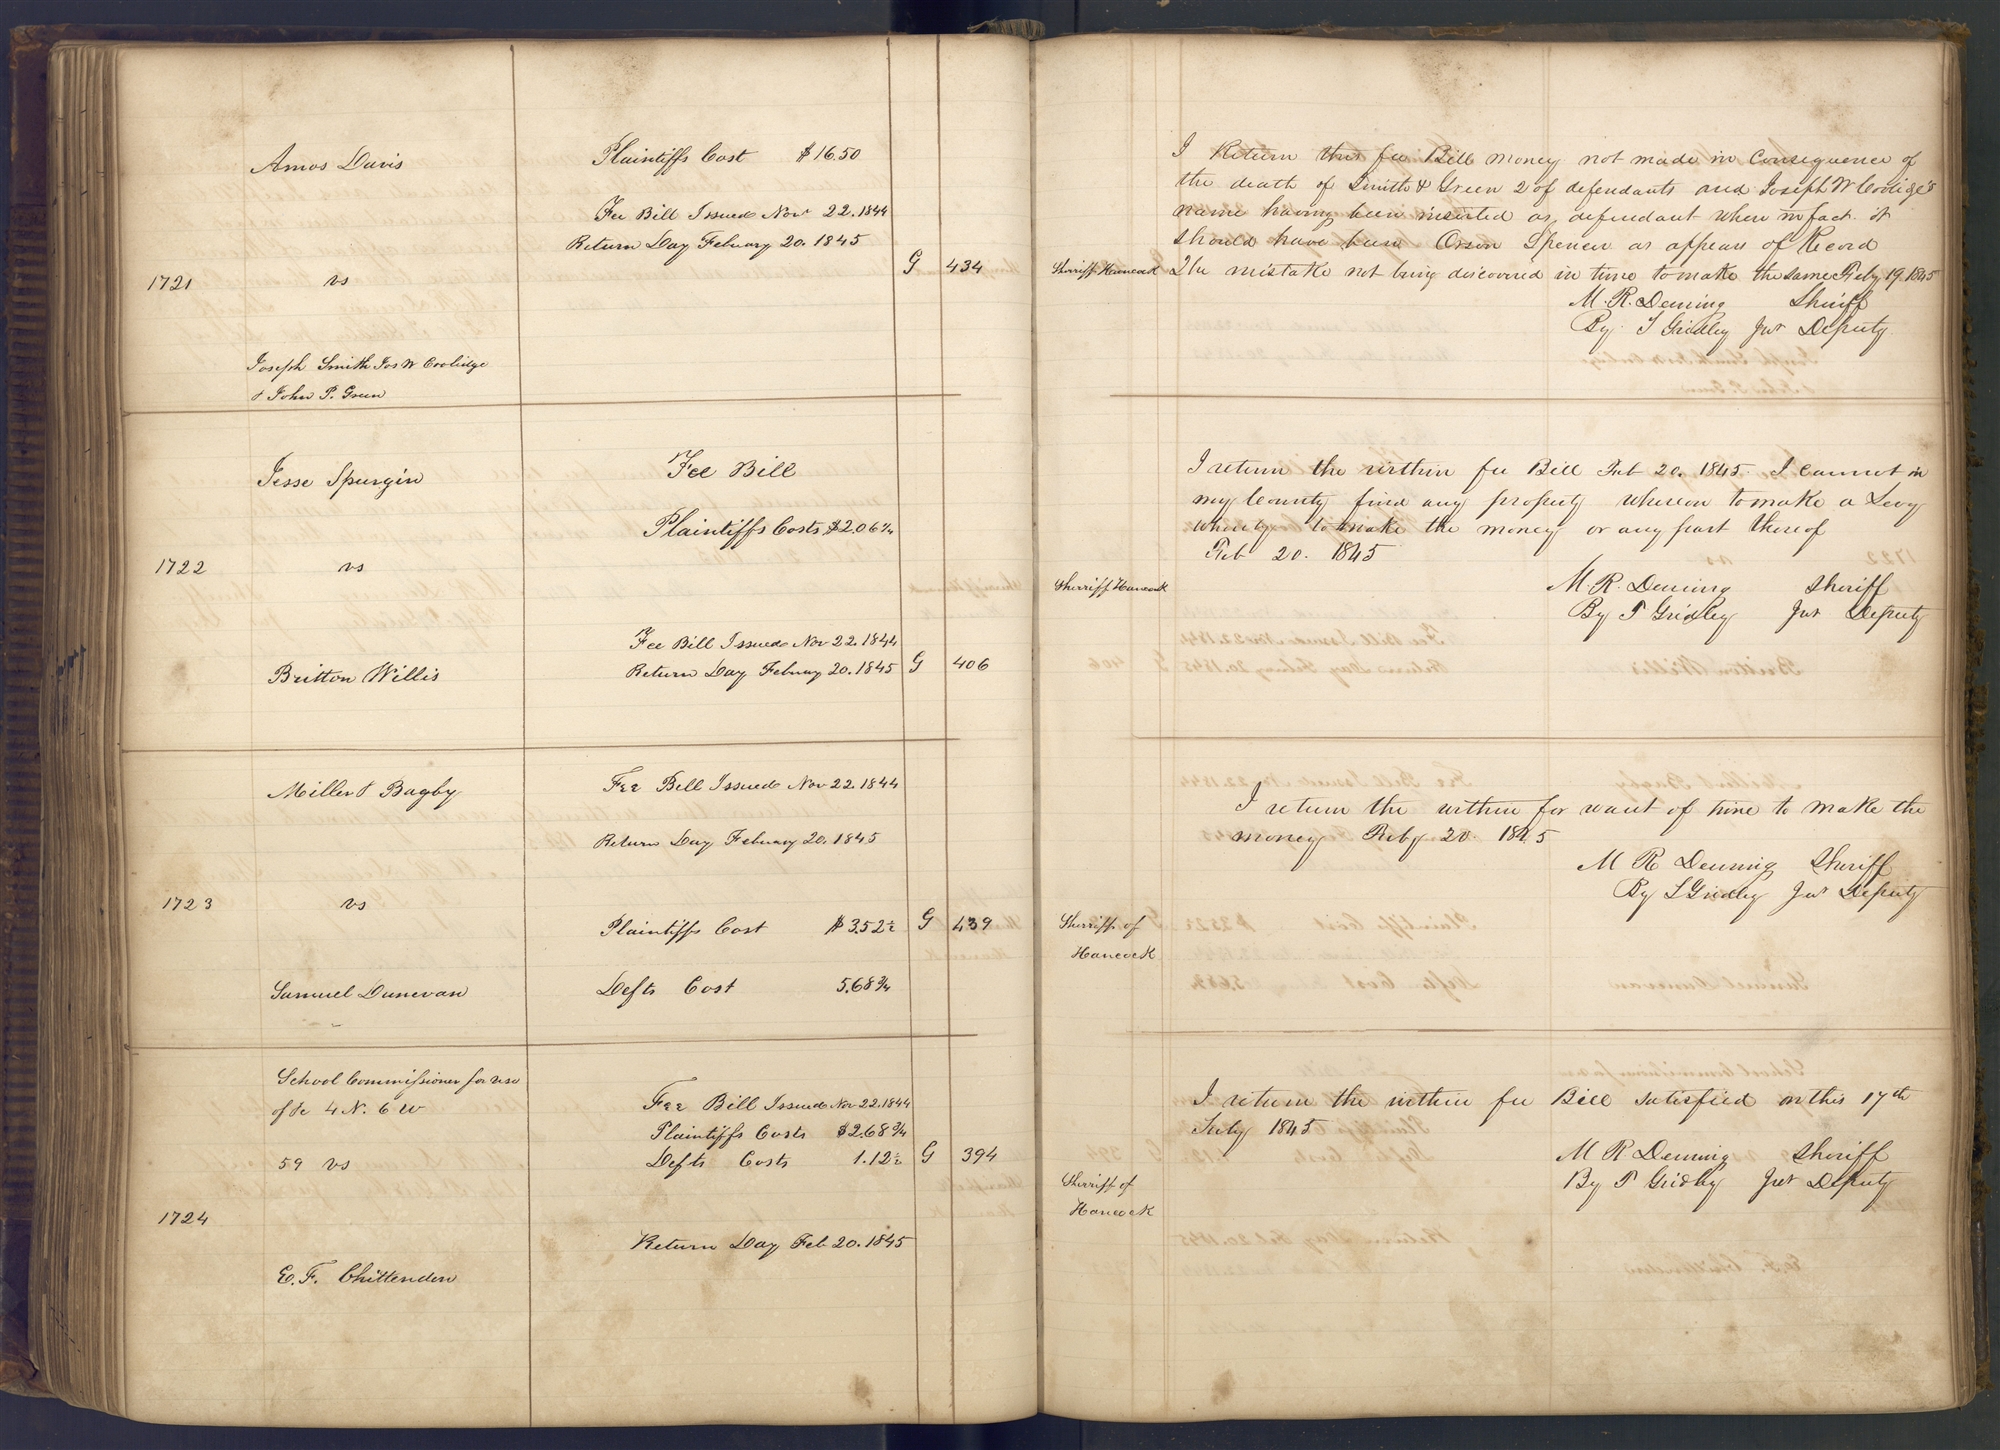 Amos Davis
Plaintiffs Cost $16.50
Fee Bill Issued Nov 22. 1844
Return Day Febuary 20. 1845
G 434
1721 vs
Joseph Smith Jos W Coolidge
& John P. Green
Jesse Spurgin
Fee Bill
Plaintiffs Costs $2.06 1/4
1722 vs
Fee Bill Issued Nov 22. 1844
Britton Willis
Return Day Febuay 20. 1845 G 406
Miller & Bagby
Fee Bill Issued Nov 22 1844
Return Day Febuary 20. 1845
1723 vs
Plaintiffs Cost $3.52 1/2 G 439
Samuel Dunevan
Defts Cost 5.68 3/4
School Commissioner for use
of Tr 4 N. 6 W
Fee Bill Issued Nov 22. 1844
Plaintiffs Costs $2.68 3/4
59 vs
Defts Costs 1.12 1/2 G 394
1724
Return Day Feb 20. 1845
E. F. Chittenden
I Return this fee Bill money not made in Consequence of
the death of Smith & Green 2 of defendants and Joseph W Coolidge's
name having been inserted as defendant when in fact it
should have been Orson Spencer as appears of Record
Sherriff Hancock The mistake not being discovered in time to make the same Feby 19. 1845
M. R. Deming Sheriff
By T Gridley Jur Deputy
I return the within fee Bill Feb 20. 1845 I cannot in
my County find any property whereon to make a Levy
whereby to make the money or any part thereof
Feb 20. 1845
Sherriff Hancock
M. R. Deming Sheriff
By T Gridley Jur Deputy
I return the within for want of time to make the
money Feby 20 1845
M R Deming Sheriff
By T Gridley Jur Deputy
Sherriff of
Hancock
I return the within fee Bill satisfied on this 17th
July 1845
M R Deming Sheriff
By T Gridley Jur Deputy
Sherriff of
Hancock